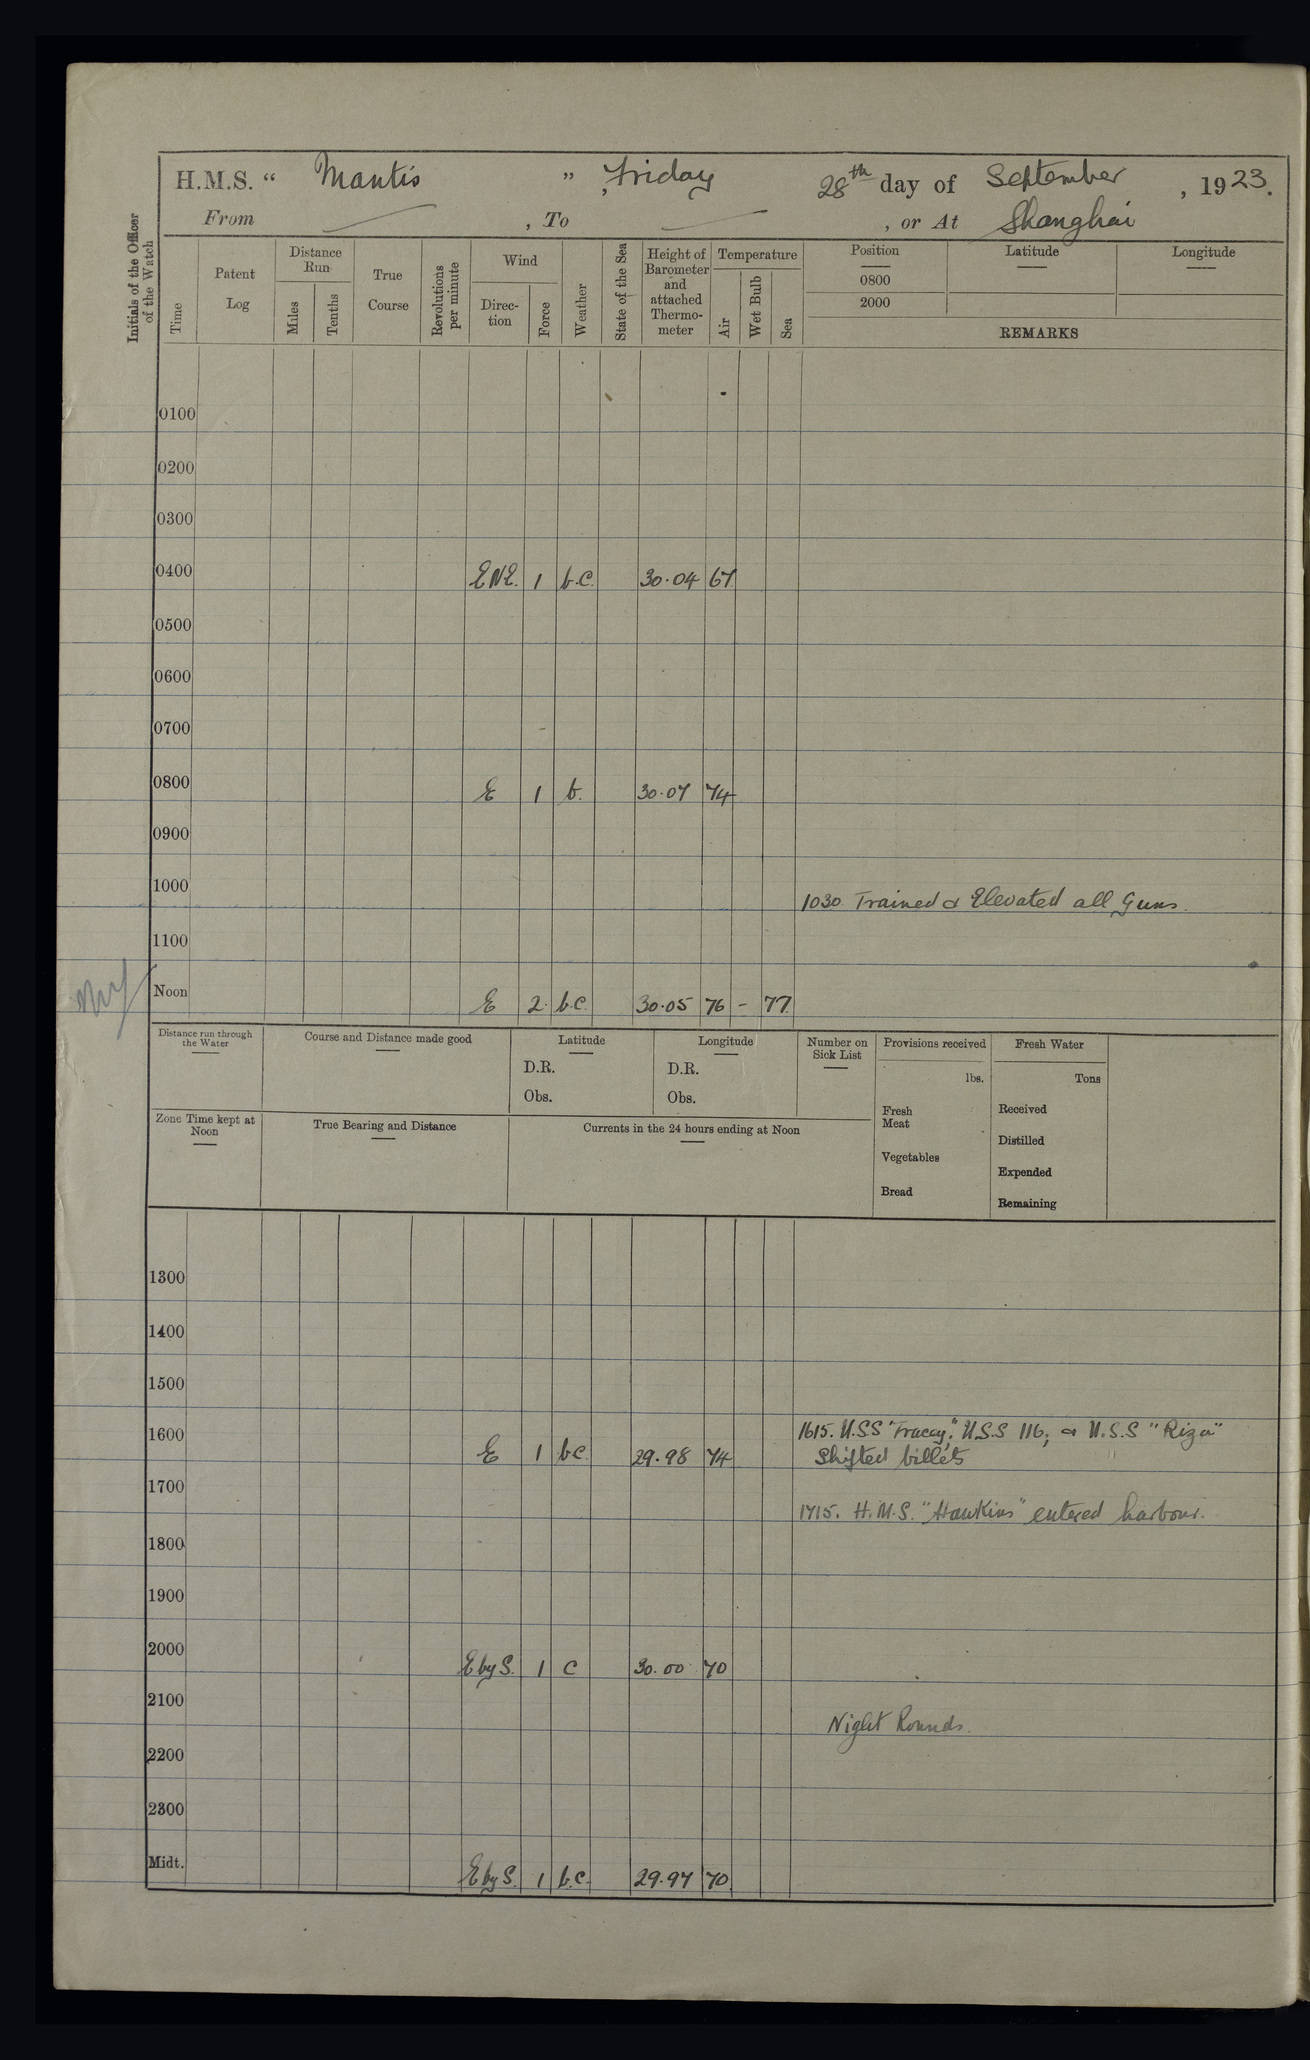 H.M.S. “ Mantis ” , Friday 28th day of September , 1923.
From , To , or At Shanghai
Initials of the Officer of the Watch
Time
Patent Log
Distance Run
Miles
Tenths
True Course
Revolutions per minute
Wind
Direc-tion
Force
Weather
State of the Sea
Height of Barometer and attached Thermo-meter
Temperature
Air
Wet Bulb
Sea
Position Latitude Longitude
0800
2000
REMARKS
0100
0200
0300
0400 ENE. 1 b.c. 30.04 67
0500
0600
0700
0800 E 1 b. 30.07 74
0900
1000 1030 Trained & Elevated all Guns.
1100
Noon E 2. b.c. 30.05 76 - 77
Distance run through the Water
Course and Distance made good
Latitude
D.R.
Obs.
Longitude
D.R.
Obs.
Number on Sick List
Provisions received
lbs.
Fresh Meat
Vegetables
Bread
Fresh Water
Tons
Received
Distilled
Expended
Remaining
Zone Time kept at Noon
True Bearing and Distance
Currents in the 24 hours ending at Noon
1300
1400
1500
1600 E 1 bc. 29.98 74 1615. U.S.S "Tracey", U.S.S 116, & U.S.S "Rizal"
Shifted billets
1700 1715. H.M.S. "Hawkins" entered harbour.
1800
1900
2000 E by S. 1 c 30.00 70
2100 Night Rounds.
2200
2300
Midt. E by S. 1 b.c. 29.97 70